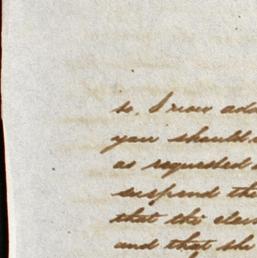 so. I now add
you should
as requested
suspend the
that the clai
and that she